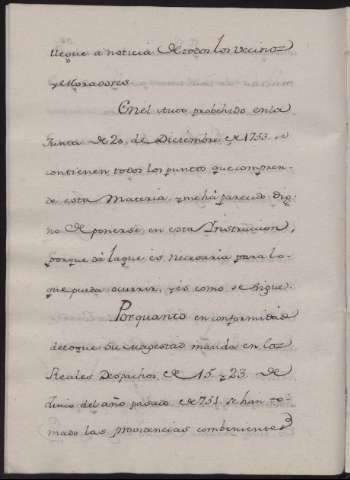 llegue a noticia de todos los vecinos
y Moradores.
En el auto prohehido en la
Junta de 20, de Diciembre de 1753. se
contienen todos los puntos que compren-
de esta Materia, y me há parecido dig-
no de ponerse en esta Instruccion,
porque dá la que és, necesaria para lo
que pueda ocurrir, y és como se sigue.
Por quanto en conformidad
de lo que Su Magestad manda en los
Reales Despachos de 15, y 23. de
Junio del año pasado de 751. se han to-
mado las providencias combenientes